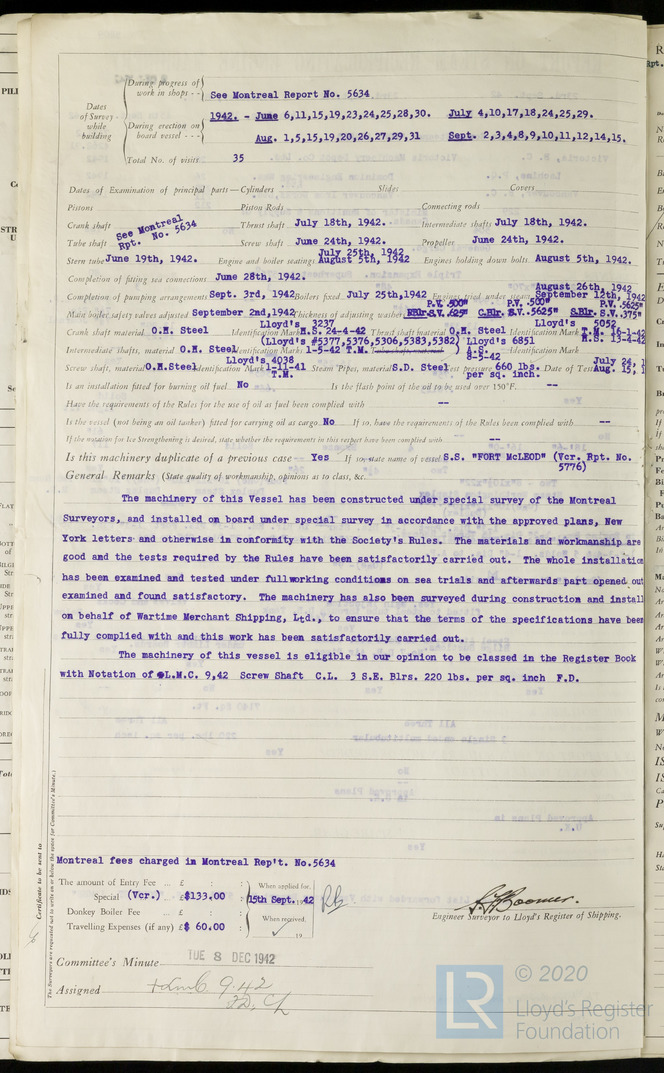 During progress of
work in shops - - See Montreal Report No. 5634
Dates
of Survey
while
building
During erection on
board vessel - - - 1942. - June 6,11,15,19,23,24,25,28,30. July 4,10,17,18,24,25,29.
Aug. 1,5,15,19,20,26,27,29,31 Sept. 2,3,4,8,9,10,11,12,14,15.
Total No. of visits 35
Dates of Examination of principal parts—Cylinders Slides Covers
Pistons Piston Rods Connecting rods
Crank shaft See Montreal Rpt. No. 5634 Thrust shaft July 18th, 1942. Intermediate shafts July 18th, 1942.
Tube shaft Screw shaft June 24th, 1942. Propeller June 24th, 1942.
Stern tube June 19th, 1942. Engine and boiler seatings July 25th, 1942 August 5th, 1942 Engines holding down bolts August 5th, 1942.
Completion of fitting sea connections June 28th, 1942.
Completion of pumping arrangements Sept. 3rd, 1942 Boilers fixed July 25th, 1942 Engines tried under steam August 26th, 1942 September 12th, 1942
Main boiler safety valves adjusted September 2nd, 1942 Thickness of adjusting washers P.V. .500" P.V. .500" P.V. .5625"
S.V. .625" C.Blr. S.V. .5625" S.Blr. S.V. .375"
Crank shaft material O.H. Steel Identification Mark Lloyd's 3237 H.S. 24-4-42 Thrust shaft material O.H. Steel Identification Mark Lloyd's 5052 T.M. 16-1-42
Intermediate shafts, material O.H. Steel Identification Marks (Lloyd's #5377,5376,5306,5383,5382) 1-5-42 T.M. Tube shaft, material Lloyd's 6851 A.S. 8-5-42 Identification Mark H.S. 13-4-42
Screw shaft, material O.H.Steel Identification Mark Lloyd's 4038 1-11-41 T.M. Steam Pipes, material S.D. Steel Test pressure 660 lbs. per sq. inch. Date of Test July 24, Aug. 15,
Is an installation fitted for burning oil fuel No Is the flash point of the oil to be used over 150°F. --
Have the requirements of the Rules for the use of oil as fuel been complied with --
Is the vessel (not being an oil tanker) fitted for carrying oil as cargo No If so, have the requirements of the Rules been complied with --
If the notation for Ice Strengthening is desired, state whether the requirements in this respect have been complied with --
Is this machinery duplicate of a previous case Yes If so, state name of vessel S.S. "FORT McLEOD" (Vcr. Rpt. No.
5776)
General Remarks (State quality of workmanship, opinions as to class, &c.
The machinery of this Vessel has been constructed under special survey of the Montreal
Surveyors, and installed on board under special survey in accordance with the approved plans, New
York letters and otherwise in conformity with the Society's Rules. The materials and workmanship are
good and the tests required by the Rules have been satisfactorily carried out. The whole installation
has been examined and tested under full working conditions on sea trials and afterwards part opened out
examined and found satisfactory. The machinery has also been surveyed during construction and install
on behalf of Wartime Merchant Shipping, Ltd., to ensure that the terms of the specifications have been
fully complied with and this work has been satisfactorily carried out.
The machinery of this vessel is eligible in our opinion to be classed in the Register Book
with Notation of L.M.C. 9,42 Screw Shaft C.L. 3 S.E. Blrs. 220 lbs. per sq. inch F.D.
Montreal fees charged in Montreal Rep't. No.5634
The amount of Entry Fee ... £ : : When applied for,
Special (Vcr.) £ $133.00 15th Sept. 1942 RB
Donkey Boiler Fee ... £ : : When received,
Travelling Expenses (if any) £ $ 60.00 19
Engineer Surveyor to Lloyd's Register of Shipping.
Committee's Minute TUE 8 DEC 1942
Assigned + Lmb 9.42
FD, CL
Certificate to be sent to
The Surveyors are requested not to write on or below the space for Committee's Minute.
LR © 2020
Lloyd's Register
Foundation